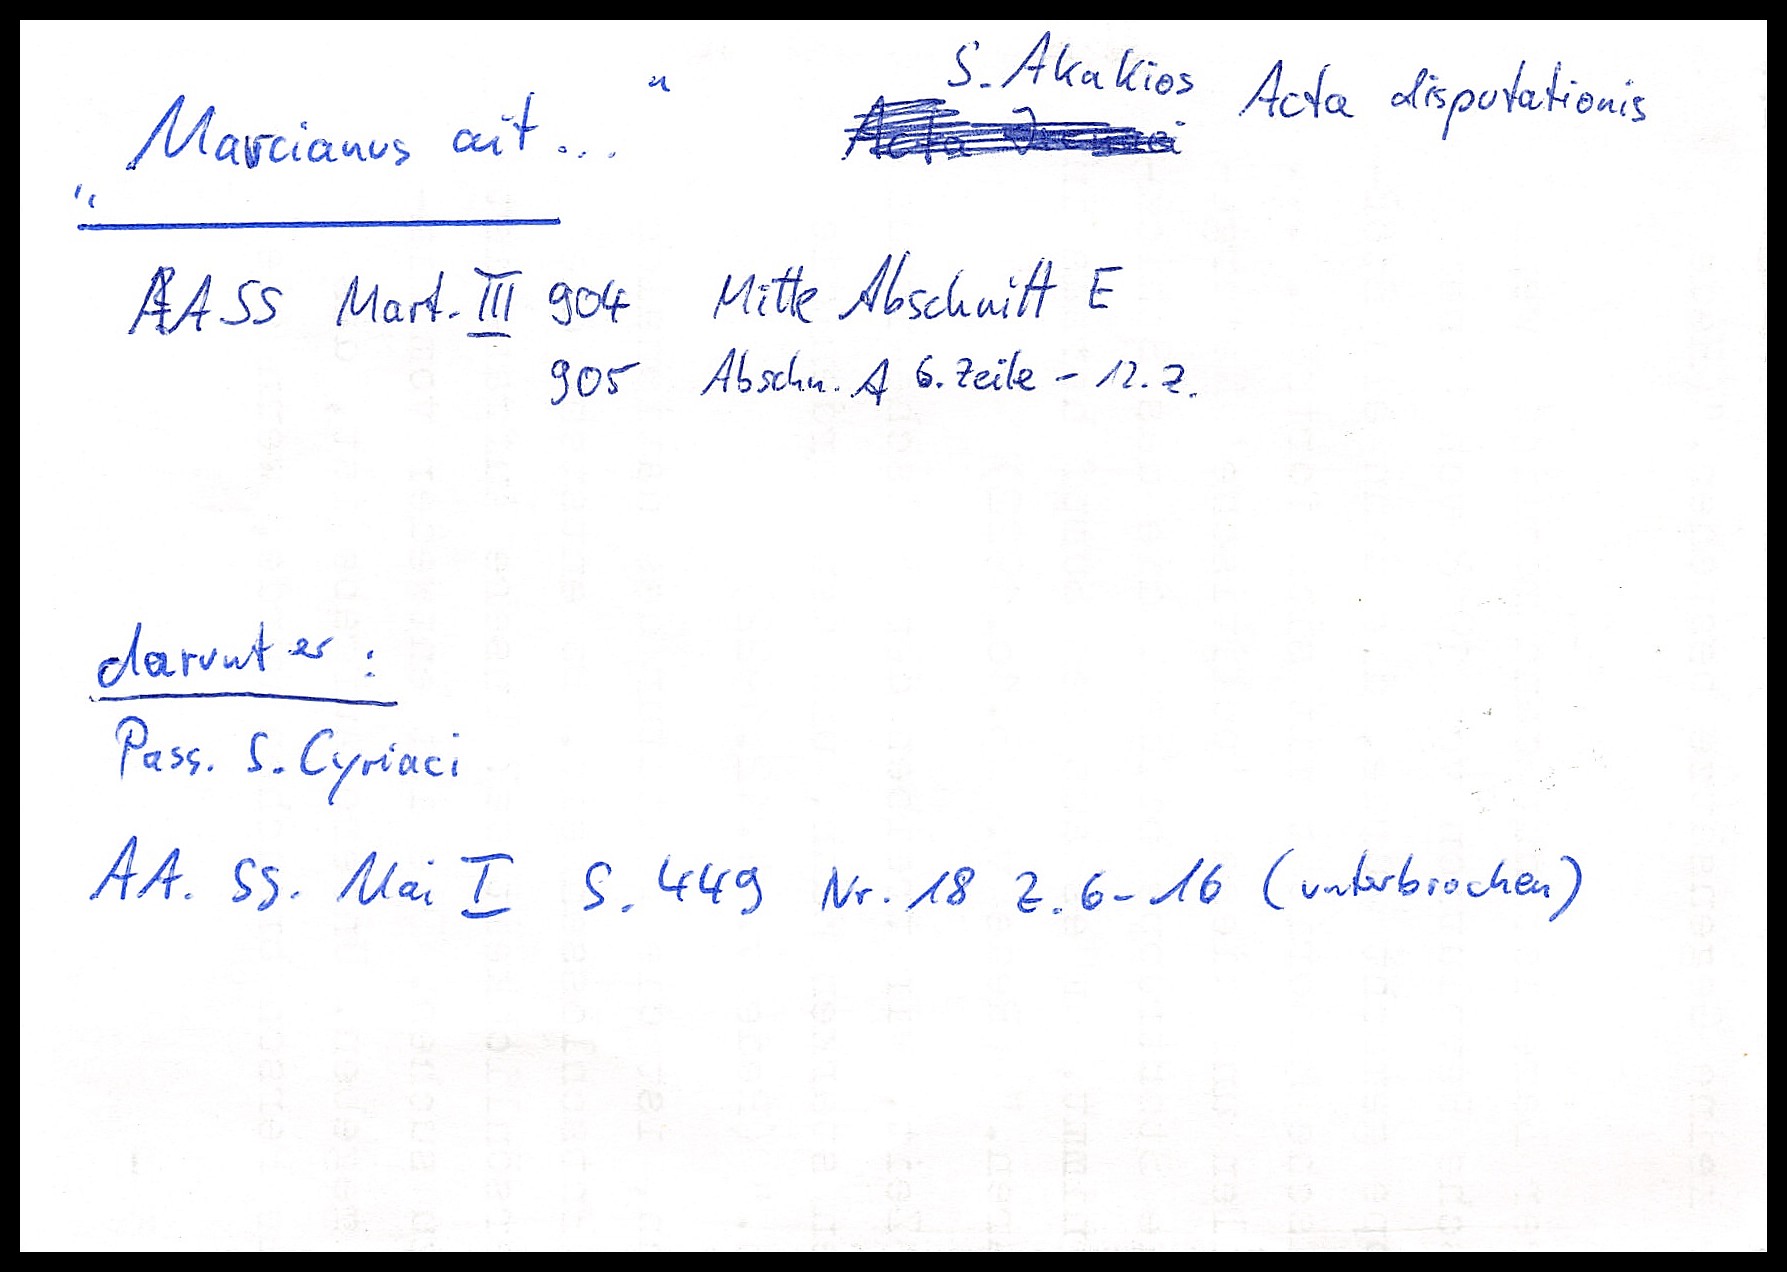 „Marcianus ait..." S. Akakios Acta disputationis
AASS Mart. III 904 Mitte Abschnitt E
905 Abschn. A 6. Zeile - 12. Z.
darunter:
Pass. S. Cyriaci
AA. SS. Mai I S. 449 Nr. 18 Z. 6-16 (unterbrochen)